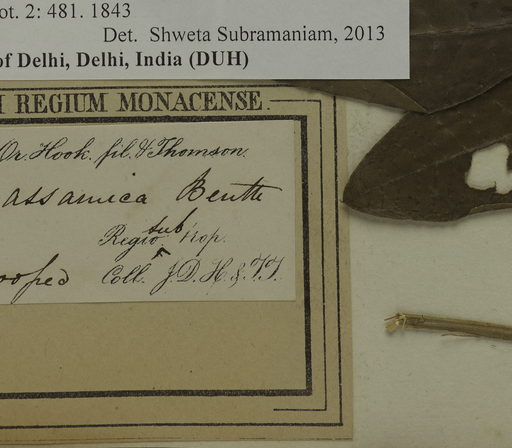 ot. 2: 481. 1843
Det. Shweta Subramaniam, 2013
of Delhi, Delhi, India (DUH)
REGIUM MONACENSE.
Hook. fil. & Thomson.
assamica Benth
Regio sub trop.
Coll. J. D. H. & T. T.